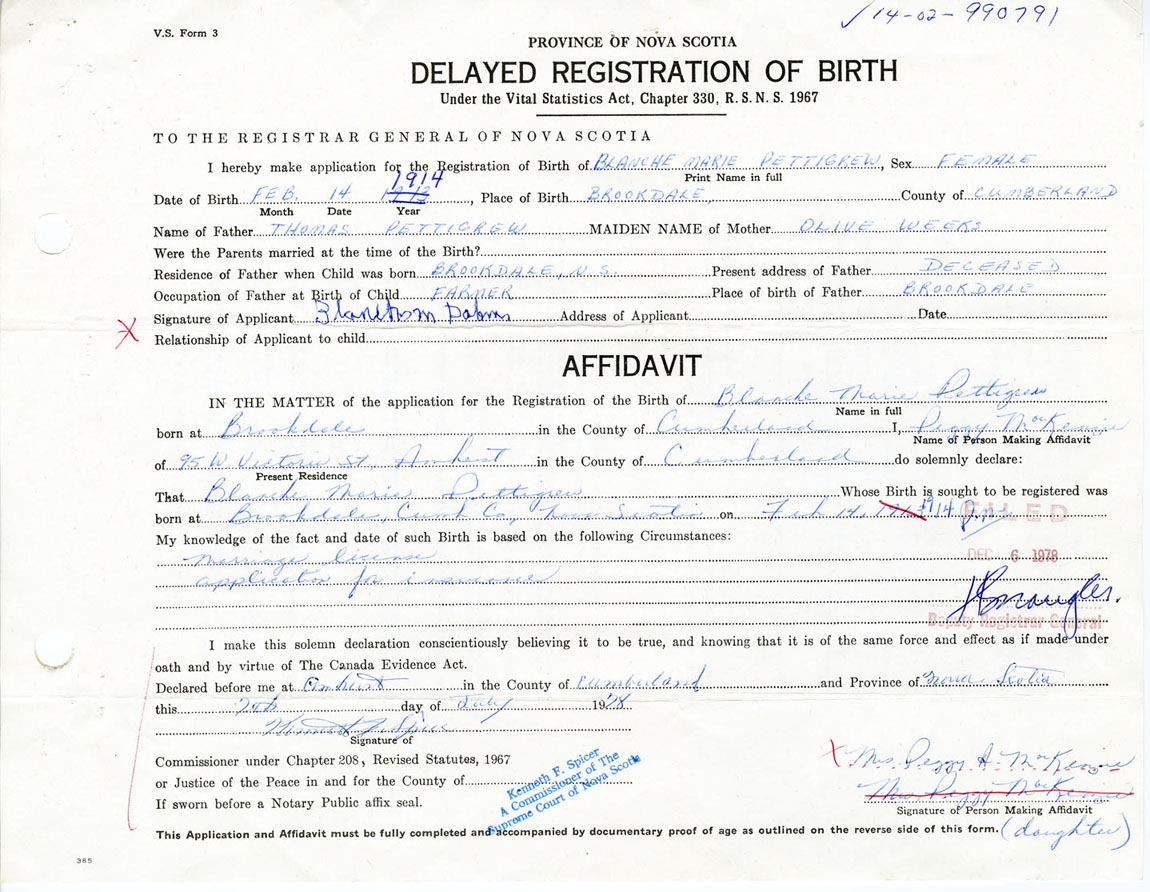 V.S. Form 3
✓ 14-02-990791
PROVINCE OF NOVA SCOTIA
DELAYED REGISTRATION OF BIRTH
Under the Vital Statistics Act, Chapter 330, R.S.N.S. 1967
TO THE REGISTRAR GENERAL OF NOVA SCOTIA
I hereby make application for the Registration of Birth of BLANCHE MARIE PETTIGREW, Sex FEMALE
Print Name in full
1914
Date of Birth FEB. 14, Place of Birth BROOKDALE, County of CUMBERLAND
Month Date Year
Name of Father THOMAS PETTIGREW MAIDEN NAME of Mother OLIVE WEEKS
Were the Parents married at the time of the Birth?
Residence of Father when Child was born BROOKDALE, N.S. Present address of Father DECEASED
Occupation of Father at Birth of Child FARMER Place of birth of Father BROOKDALE
Signature of Applicant Address of Applicant Date
X Relationship of Applicant to child
AFFIDAVIT
IN THE MATTER of the application for the Registration of the Birth of Blanche Marie Pettigrew
Name in full
born at Brookdale in the County of Cumberland I, Peggy MacKenzie
Name of Person Making Affidavit
of 95 W. Victoria St, Amherst in the County of Cumberland do solemnly declare:
Present Residence
That Blanche Marie Pettigrew Whose Birth is sought to be registered was
born at Brookdale, Cumb Co, Nova Scotia on Feb 14, 1914
FILED
My knowledge of the fact and date of such Birth is based on the following Circumstances:
marriage license
DEC 6 1978
application for insurance
Deputy Registrar General
I make this solemn declaration conscientiously believing it to be true, and knowing that it is of the same force and effect as if made under
oath and by virtue of The Canada Evidence Act.
Declared before me at Amherst in the County of Cumberland and Province of Nova Scotia
this day of July 1978
Kenneth F Spicer
Signature of
Commissioner under Chapter 208, Revised Statutes, 1967
or Justice of the Peace in and for the County of
If sworn before a Notary Public affix seal.
Kenneth F. Spicer
A Commissioner of The
Supreme Court of Nova Scotia
X Mrs Peggy A. MacKenzie
Mrs Peggy MacKenzie
Signature of Person Making Affidavit
This Application and Affidavit must be fully completed and accompanied by documentary proof of age as outlined on the reverse side of this form. (daughter)
385